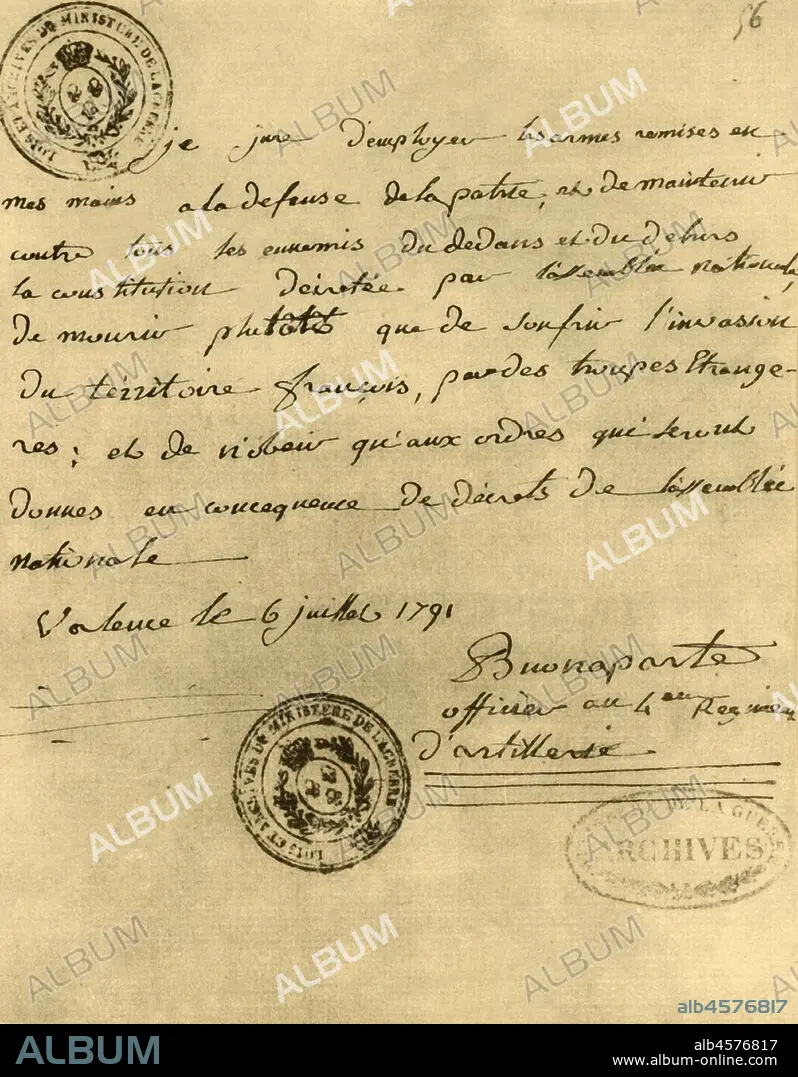 56
LOIS ET ARCHIVES DU MINISTERE DE LA GUERRE
je jure d'employer les armes remises en
mes mains a la defense de la patrie, et de maintenir
contre tous les ennemis du dedans et du dehors
la constitution décretée par l'assemblée nationale,
de mourir plutôt que de soufrir l'invasion
du térritoire françois, par des troupes Etrange-
res; et de n'obeir qu'aux ordres qui seront
donnes en concequence de décrets de l'assemblée
nationale
Valence le 6 juillet 1791
Buonaparte
officier au 4eme Regiment
d'artillerie
LOIS ET ARCHIVES DU MINISTERE DE LA GUERRE
DE LA GUERRE
ARCHIVES
ALBUM
alb4576817
ALBUM
alb4576817
www.album-online.com